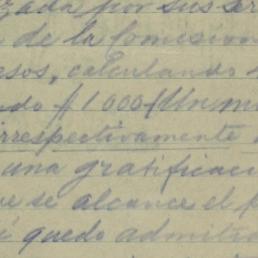 zada por sus ser
de la Comision
esos, calculando
ndo $1000 (Un mi
irrespectivamente
una gratificac
ue se alcance el
quedo admitid